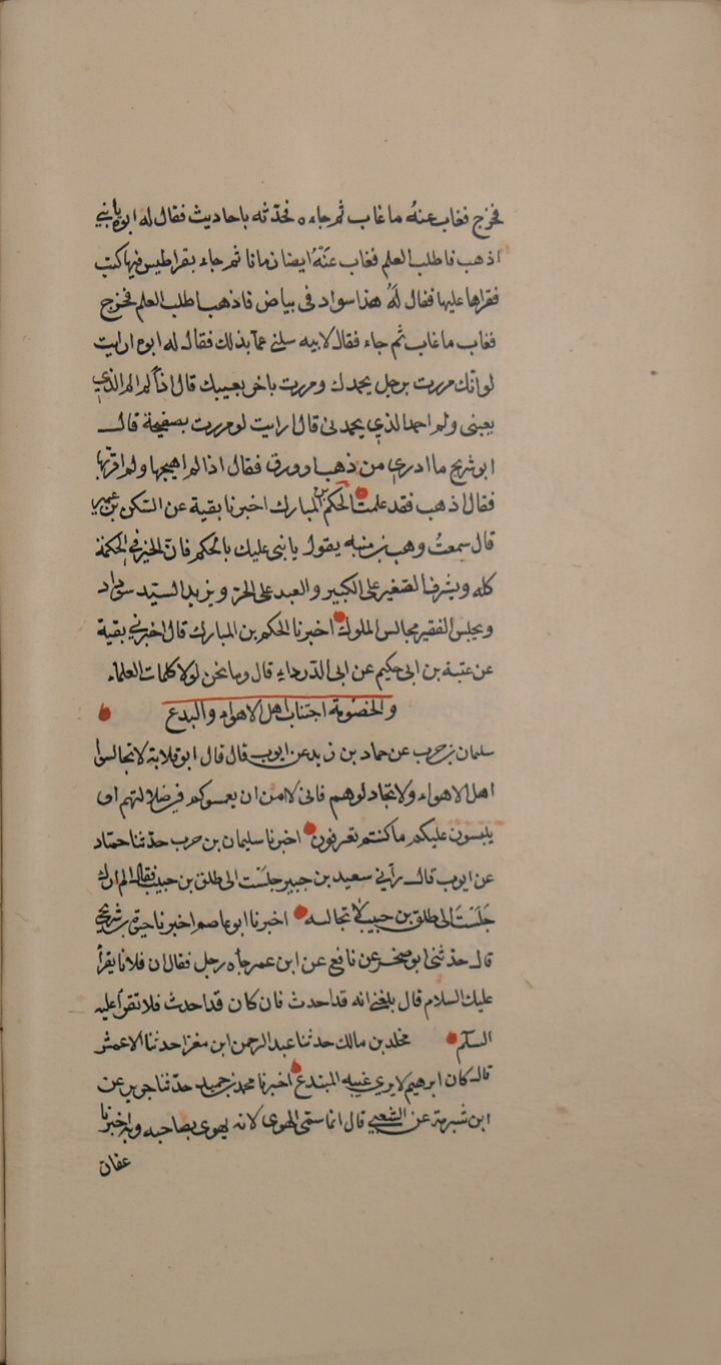 فخرج فغاب عنهُ ما غاب ثم جاءه فحدّثه باحاديث فقال له ابوه يا بني
اذهب فاطلب العلم فغاب عَنْهُ ايضا زمانا ثم جاء بقراطيس فيها كتب
فقراها عليه فقال لَهُ هذا سواد فى بياض فاذهب اطلب العلم فخرج
فغاب ما غاب ثم جاء فقال لابيه سلنى عما بدا لك فقال له ابوه ارايت
لو انك مررت برجل يمدحك ومررت باخر يعيبك قال اذاً لم الم الذى
يعيبنى ولم احمد الذى يحمدنى قال ارايت لو مررت بصفيحة قال
ابو شريح ما ادرى من ذهب او ورق فقال اذا لم اهيجها ولم اقربها
فقال اذهب فقد علمت الحكم بن المبارك اخبرنا بقية عن السكن بن عمير
قال سمعتُ وهب بن منبه يقول يا بنى عليك بالحكم فان الخير فى الحكمة
كله ويشرف الصغير على الكبير والعبد على الحر ويزيد السيد سوددا
ويجلس الفقير مجالس الملوك اخبرنا الحكم بن المبارك قال اخبرنى بقية
عن عتبة بن ابى حكيم عن ابى الدرداء قال وما نحن لولا كلمات العلماء
والخصومة اجتناب اهل الاهواء والبدع
سلمان بن حرب عن حماد بن زيد عن ايوب قال قال ابو قلابة لا تجالسوا
اهل الاهواء ولا تجادلوهم فانى لا امن ان يغمسوكم فى ضلالتهم او
يلبسون عليكم ما كنتم تعرفون اخبرنا سليمان بن حرب حدّثنا حمّاد
عن ايوب قال رآنى سعيد بن جبير جلست الى طلق بن حبيب فقال الم ارك
جَلَسْتَ الى طلق بن حبيب لا تجالسه اخبرنا ابو عاصم اخبرنا حيوة بن شريح
قال حدثنى ابو صخر عن نافع عن ابن عمر جاه رجل فقال ان فلانا يقرأ
عليك السلام قال بلغنى انه قد احدث فان كان قد احدث فلا تقرأ عليه
السلم مخلد بن مالك حدثنا عبد الرحمن ابن مغرا حدثنا الاعمش
قال كان ابرهيم لا يرى غيبه المبتدع اخبرنا محمد بن حميد حدّثنا جرير عن
ابن شبرمة عن الشعبى قال انما سمى الهوى لانه يهوى بصاحبه وبه اخبرنا
عفان